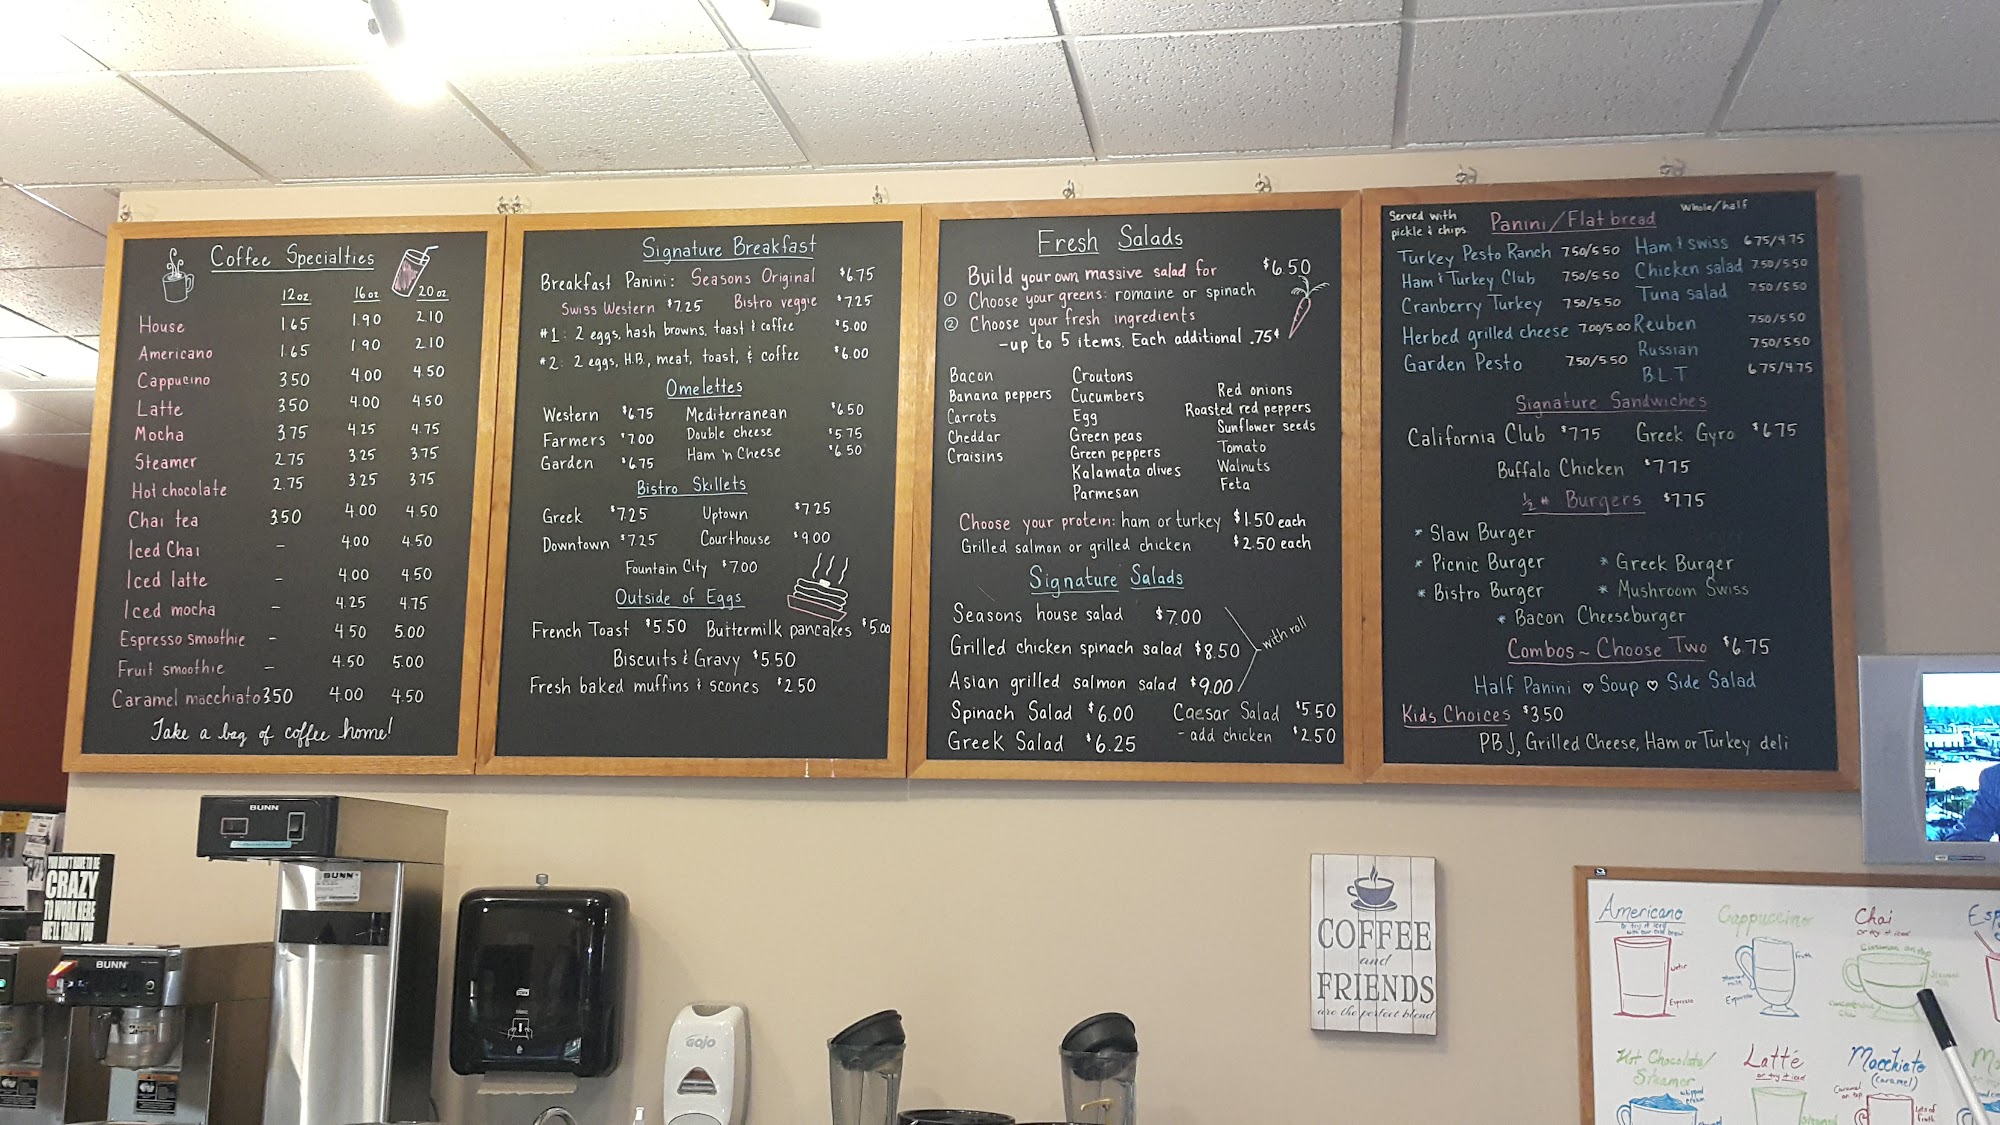 Coffee Specialties
12oz 16oz 20oz
House 1.65 1.90 2.10
Americano 1.65 1.90 2.10
Cappucino 3.50 4.00 4.50
Latte 3.50 4.00 4.50
Mocha 3.75 4.25 4.75
Steamer 2.75 3.25 3.75
Hot chocolate 2.75 3.25 3.75
Chai tea 3.50 4.00 4.50
Iced Chai - 4.00 4.50
Iced latte - 4.00 4.50
Iced mocha - 4.25 4.75
Espresso smoothie - 4.50 5.00
Fruit smoothie - 4.50 5.00
Caramel macchiato 3.50 4.00 4.50
Take a bag of coffee home!
Signature Breakfast
Breakfast Panini: Seasons Original $6.75
Swiss Western $7.25 Bistro veggie $7.25
#1: 2 eggs, hash browns, toast & coffee $5.00
#2: 2 eggs, H.B., meat, toast, & coffee $6.00
Omelettes
Western $6.75 Mediterranean $6.50
Farmers $7.00 Double cheese $5.75
Garden $6.75 Ham 'n Cheese $6.50
Bistro Skillets
Greek $7.25 Uptown $7.25
Downtown $7.25 Courthouse $9.00
Fountain City $7.00
Outside of Eggs
French Toast $5.50 Buttermilk pancakes $5.00
Biscuits & Gravy $5.50
Fresh baked muffins & scones $2.50
Fresh Salads
Build your own massive salad for $6.50
① Choose your greens: romaine or spinach
② Choose your fresh ingredients
-up to 5 items. Each additional .75¢
Bacon Croutons Red onions
Banana peppers Cucumbers Roasted red peppers
Carrots Egg Sunflower seeds
Cheddar Green peas Tomato
Craisins Green peppers Walnuts
Kalamata olives Feta
Parmesan
Choose your protein: ham or turkey $1.50 each
Grilled salmon or grilled chicken $2.50 each
Signature Salads
Seasons house salad $7.00
Grilled chicken spinach salad $8.50
Asian grilled salmon salad $9.00
with roll
Spinach Salad $6.00 Caesar Salad $5.50
Greek Salad $6.25 - add chicken $2.50
Served with pickle & chips
Panini/Flatbread
Whole/half
Turkey Pesto Ranch 7.50/5.50 Ham & Swiss 6.75/4.75
Ham & Turkey Club 7.50/5.50 Chicken salad 7.50/5.50
Cranberry Turkey 7.50/5.50 Tuna salad 7.50/5.50
Herbed grilled cheese 7.00/5.00 Reuben 7.50/5.50
Garden Pesto 7.50/5.50 Russian 7.50/5.50
B.L.T 6.75/4.75
Signature Sandwiches
California Club $7.75 Greek Gyro $6.75
Buffalo Chicken $7.75
½ # Burgers $7.75
* Slaw Burger
* Picnic Burger * Greek Burger
* Bistro Burger * Mushroom Swiss
* Bacon Cheeseburger
Combos ~ Choose Two $6.75
Half Panini ♡ Soup ♡ Side Salad
Kids Choices $3.50
PBJ, Grilled Cheese, Ham or Turkey deli
BUNN
BUNN
BUNN
YOU DON'T HAVE TO BE
CRAZY
TO WORK HERE
WE'LL TRAIN YOU
GOJO
COFFEE
and
FRIENDS
are the perfect blend
Americano
or try it iced
with our cold brew
Water
Espresso
Cappuccino
Froth
Steamed milk
Espresso
Chai
or try it iced
Cinnamon on top
Steamed milk
Hot Chocolate/
Steamer
whipped cream
Latté
or try it iced
Steamed
Macchiato
(caramel)
Caramel on top
Lots of froth